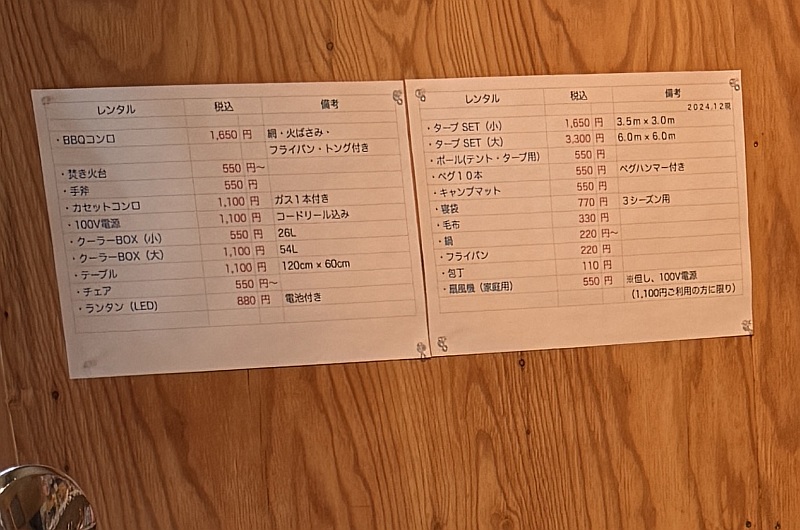 レンタル 税込 備考
・BBQコンロ 1,650 円 網・火ばさみ・
フライパン・トング付き
・焚き火台 550 円~
・手斧 550 円
・カセットコンロ 1,100 円 ガス1本付き
・100V電源 1,100 円 コードリール込み
・クーラーBOX(小) 550 円 26L
・クーラーBOX(大) 1,100 円 54L
・テーブル 1,100 円 120cm×60cm
・チェア 550 円~
・ランタン(LED) 880 円 電池付き
レンタル 税込 備考
2024,12現
・タープ SET(小) 1,650 円 3.5m×3.0m
・タープ SET(大) 3,300 円 6.0m×6.0m
・ポール(テント・タープ用) 550 円
・ペグ10本 550 円 ペグハンマー付き
・キャンプマット 550 円
・寝袋 770 円 3シーズン用
・毛布 330 円
・鍋 220 円~
・フライパン 220 円
・包丁 110 円
・扇風機(家庭用) 550 円 ※但し、100V電源
(1,100円ご利用の方に限り)